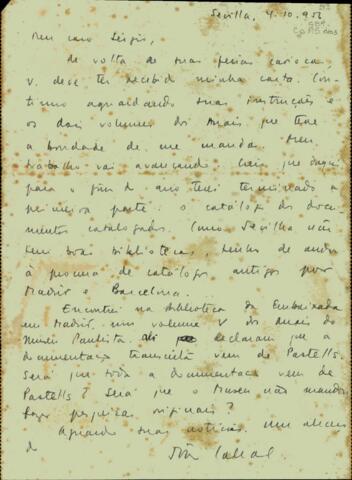 Sevilla, 4.10.956
Meu caro Sérgio,
de volta de suas ferias cariocas,
V. deve ter recebido minha carta. Con-
tinuo aguardando suas instruções e
os dois volumes dos Anais que teve
a bondade de me mandar. Meu
trabalho vai avançando. Creio que daqui
para o fim do ano terei terminado a
primeira parte: o catálogo dos docu-
mentos catalogados. Como Sevilha não
tem boas bibliotecas, tenho de andar
à procura de catálogos antigos por
Madrid e Barcelona.
Encontrei na biblioteca da Embaixada
em Madrid, um volume V dos Anais do
Museu Paulista. Ali declaram que a
documentação transcrita vem de Pastells.
Será que toda a documentação vem de
Pastells? Será que o Museu não mandou
fazer pesquisas originais?
Aguardo suas notícias. Um abraço
do
João Cabral